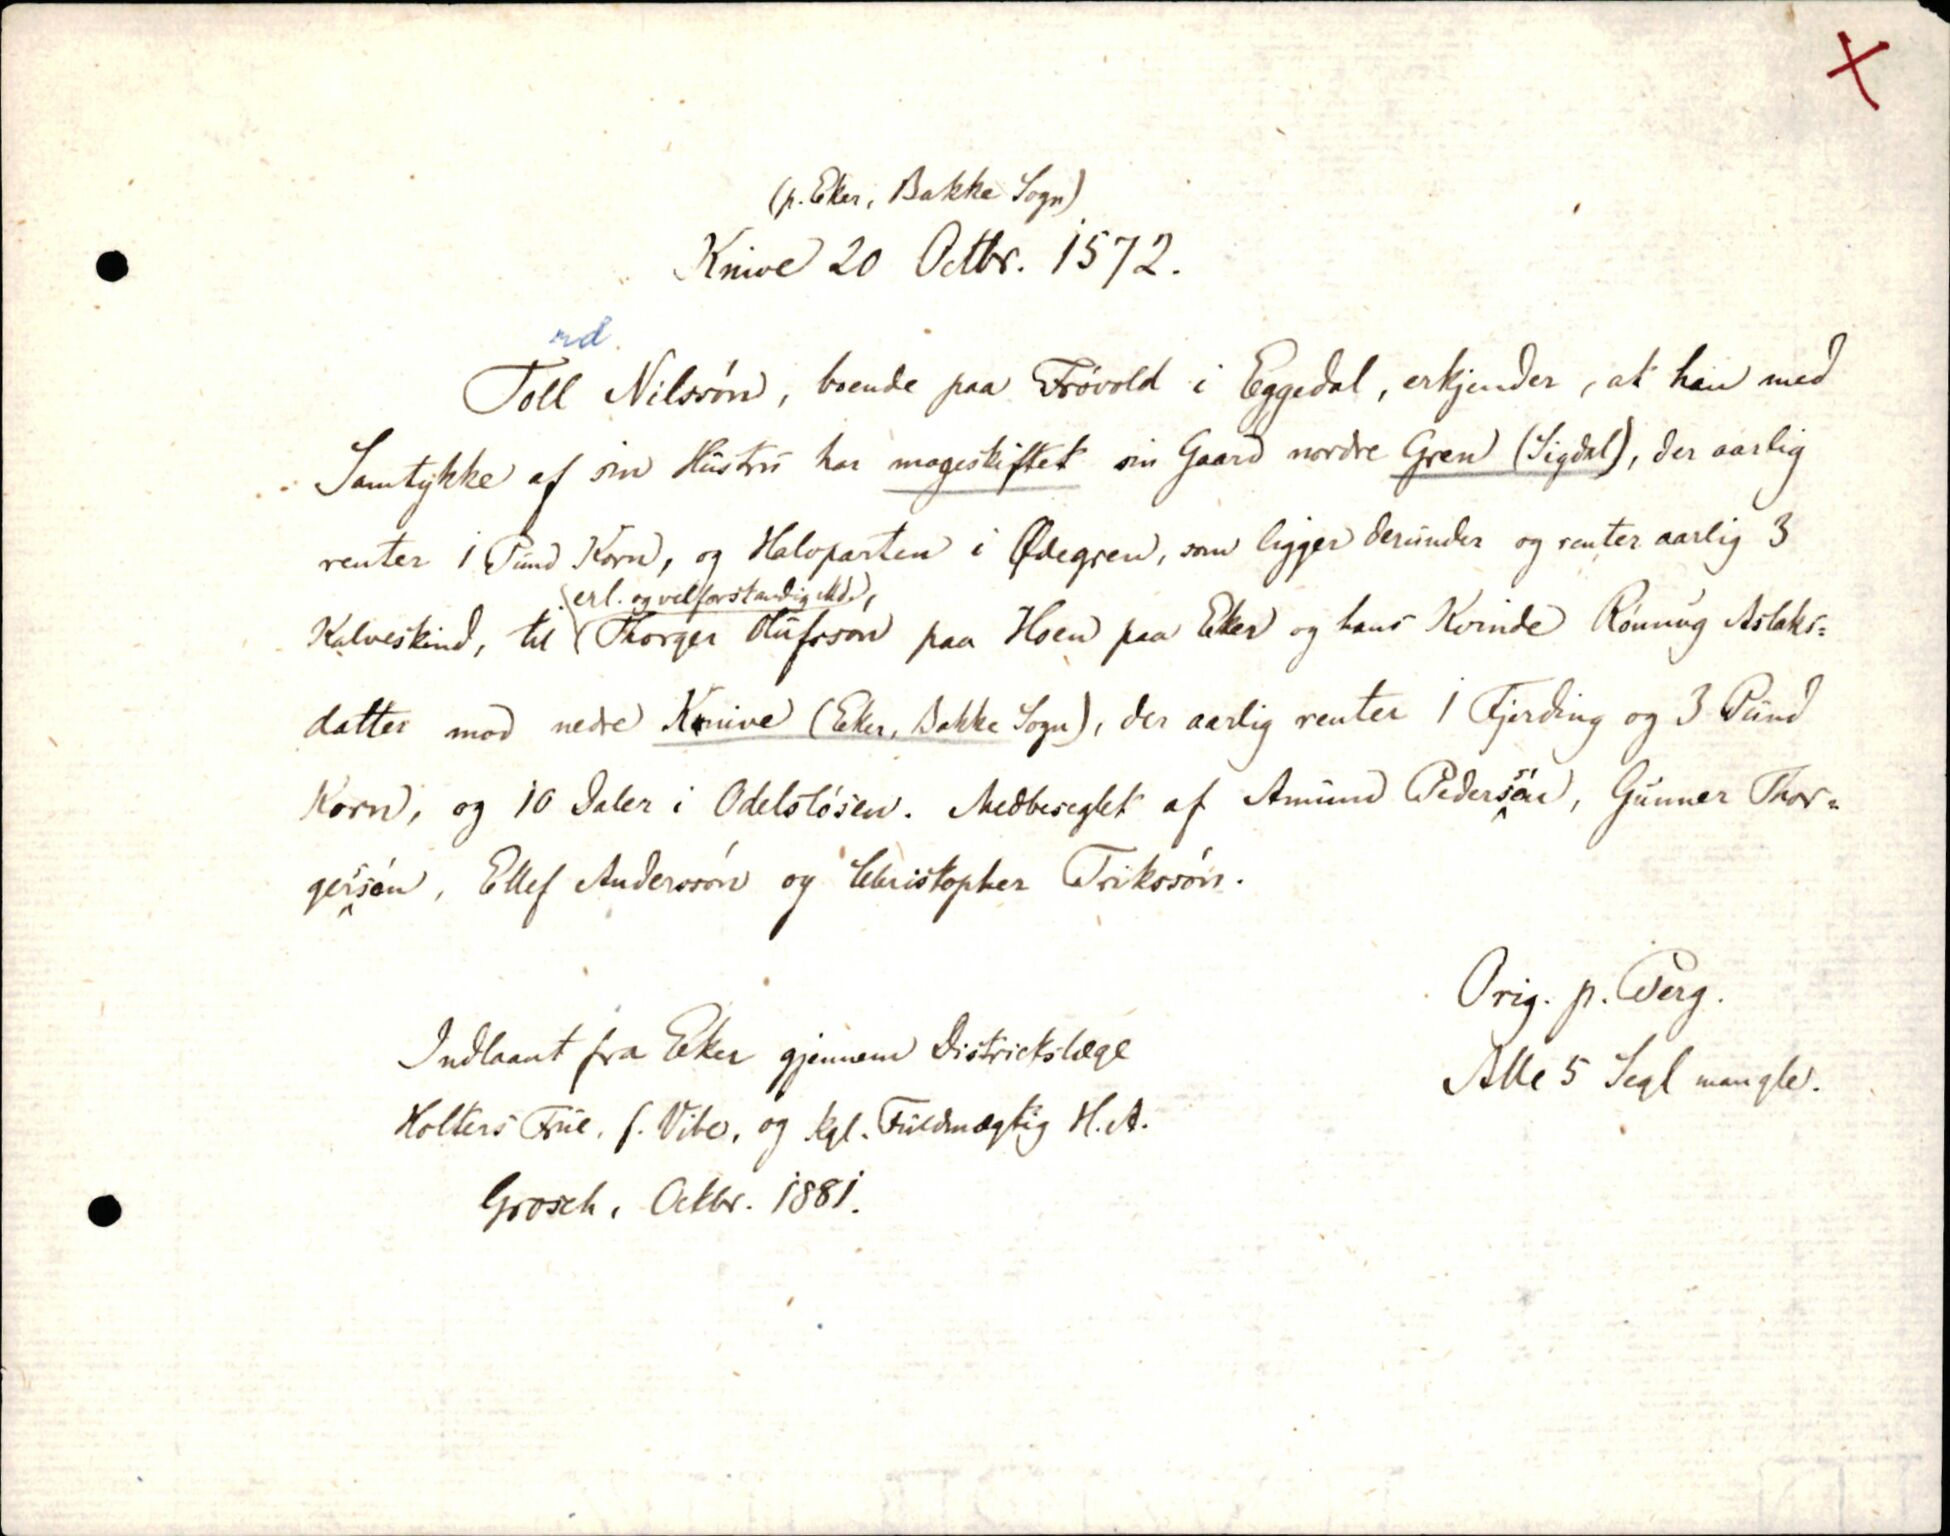 (p. Eker, Bakke Sogn)
Knive 20 Octbr. 1572.
rd
Toll Nilssön, boende paa Frövold i Eggedal, erkjender, at han med
Samtykke af sin Hustru har mageskiftet sin Gaard nordre Gren (Sigdal), der aarlig
renter 1 Pund Korn, og Halvparten i Ødegren, som ligger derunder og renter aarlig 3
erl. og velforstandig Md.,
Kalveskind, til Thorger Olufsson paa Hoen paa Eker og hans Kvinde Rönnug Aslaks-
datter mod nedre Knive (Eker, Bakke Sogn), der aarlig renter 1 Fjerding og 3 Pund
Korn, og 10 Daler i Odelslösen. Medbeseglet af Amund Pederssön, Gunner Thor-
gerssön, Ellef Anderssön og Christopher Erikssön.
Orig. p. Perg.
Alle 5 Segl mangle.
Indlaant fra Eker gjennem Districtslæge
Holters Frue, f. Vibe, og kgl. Fuldmægtig H. A.
Grosch, Octbr. 1881.